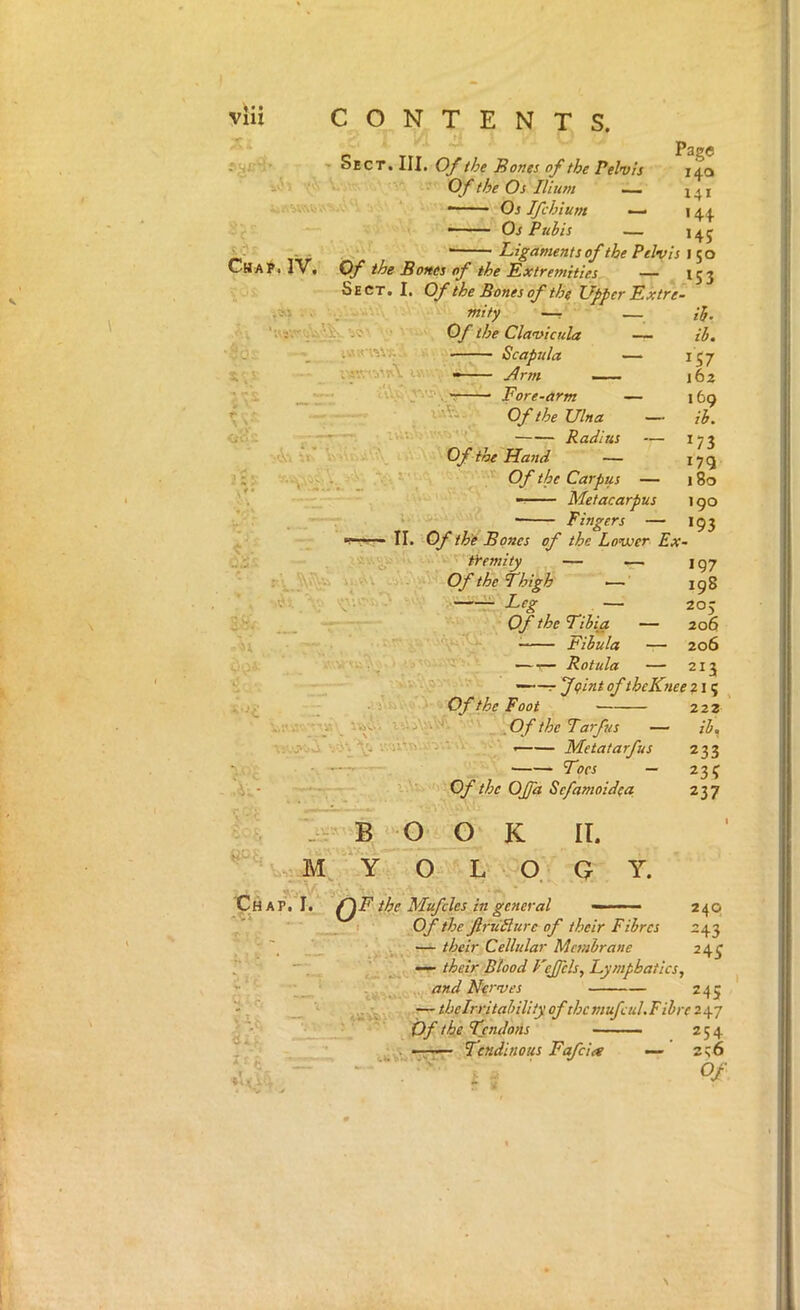 viii CONTENTS.
Page
Sect. III. Of the Bones of the Pelvis 140
Of the Os Ilium — 141
—— Os Iſchium — 144
—— Os Pubis — 145
—— Ligaments of the Pelvis 150
Chap. IV. Of the Bones of the Extremities — 153
Sect. I. Of the Bones of the Upper Extre-
mity — — ib.
Of the Clavicula — ib.
—— Scapula — 157
—— Arm —— 162
—— Fore-arm — 169
Of the Ulna — ib.
—— Radius — 173
Of the Hand — 179
Of the Carpus — 180
—— Metacarpus 190
—— Fingers — 193
—— II. Of the Bones of the Lower Ex-
tremity — — 197
Of the Thigh — 198
—— Leg — 205
Of the Tibia — 206
—— Fibula — 206
—— Rotula — 213
—— Joint of the Knee 215
Of the Foot —— 222
Of the Tarſus — ib.
—— Metatarſus 233
—— Toes — 235
Of the Oſſa Seſamoidea 237
BOOK II.
MYOLOGY.
Chap. I. OF the Muſcles in general —— 240
Of the ſtructure of their Fibres 243
— their Cellular Membrane 245
— their Blood Veſſels, Lymphatics,
and Nerves —— 245
— the Irritability of the muſcul. Fibre 247
Of the Tendons —— 254
—— Tendinous Faſciæ — 256
Of